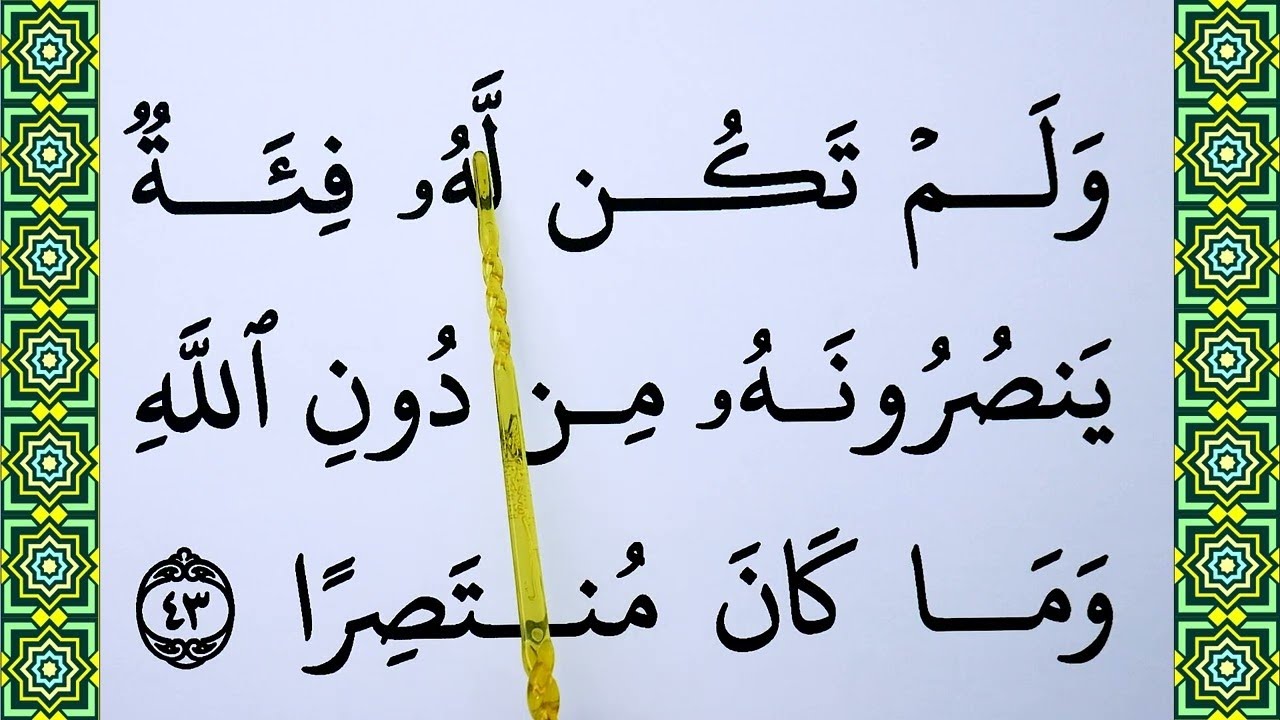 وَلَمۡ تَكُن لَّهُۥ فِئَةٌ
يَنصُرُونَهُۥ مِن دُونِ ٱللَّهِ
وَمَا كَانَ مُنتَصِرًا ٤٣